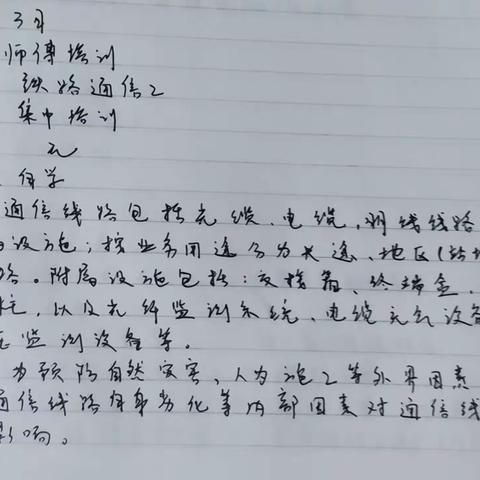 3月
师傅培训
铁路通信工
集中培训
无
自学
通信线路包括光缆、电缆、明线线路
设施；按业务用途分为长途、地区(站场
路。附属设施包括：交接箱、终端盒、
桩，以及光纤监测系统、电缆充气设备
监测设备等。
为预防自然灾害，人为施工等外界因素
通信线路自身劣化等内部因素对通信线
影响。